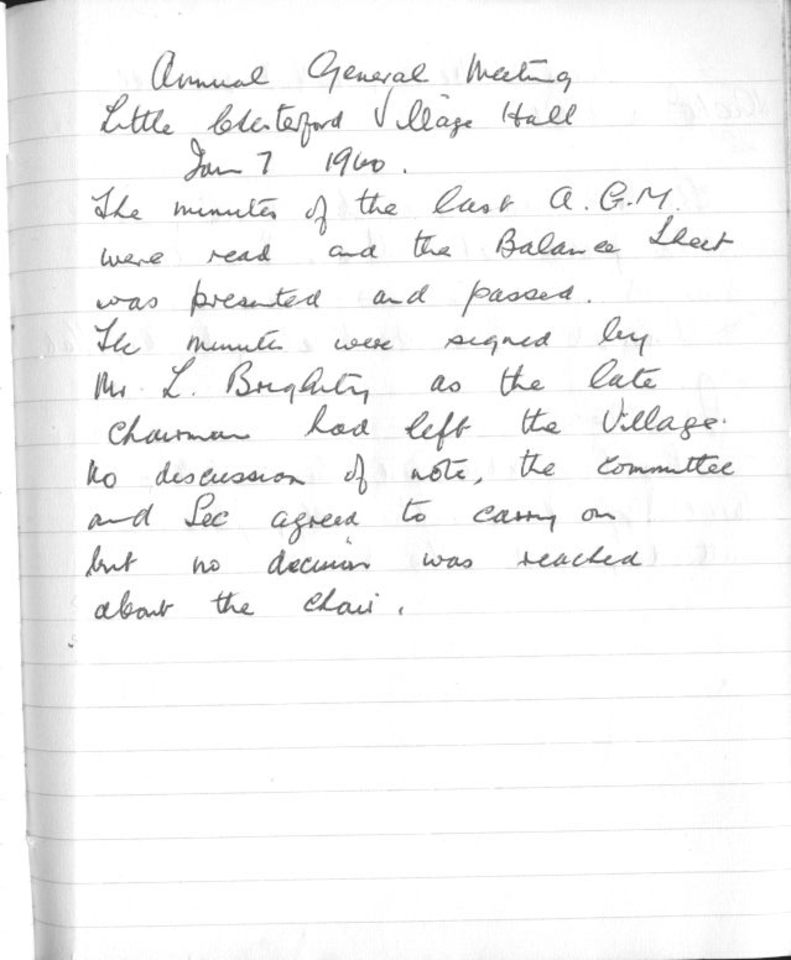 Annual General Meeting
Little Chesterford Village Hall
Jan 7 1960.
The minutes of the last A.G.M.
were read and the Balance Sheet
was presented and passed.
The minutes were signed by
Mr L. Brighty as the late
Chairman had left the Village.
No discussion of note, the committee
and Sec agreed to carry on
but no decision was reached
about the chair.